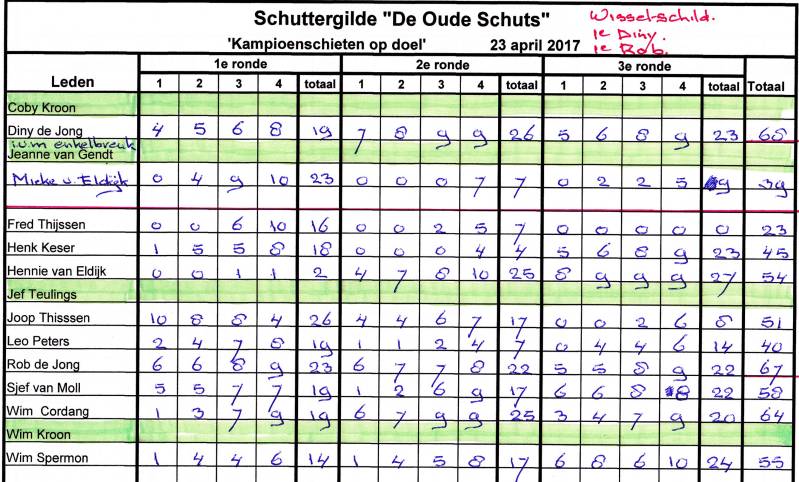 Schuttergilde "De Oude Schuts"
Wissel-schild.
1e Diny.
1e Rob.
'Kampioenschieten op doel' 23 april 2017
1e ronde 2e ronde 3e ronde
Leden 1 2 3 4 totaal 1 2 3 4 totaal 1 2 3 4 totaal Totaal
Coby Kroon
Diny de Jong 4 5 6 8 19 7 8 9 9 26 5 6 8 9 23 68
i.v.m enkelbreuk
Jeanne van Gendt
Mieke v. Eldijk 0 4 9 10 23 0 0 0 7 7 0 2 2 5 9 39
Fred Thijssen 0 0 6 10 16 0 0 2 5 7 0 0 0 0 0 23
Henk Keser 1 5 5 8 18 0 0 0 4 4 5 6 8 9 23 45
Hennie van Eldijk 0 0 1 1 2 4 7 8 10 25 8 9 9 9 27 54
Jef Teulings
Joop Thisssen 10 8 8 4 26 4 4 6 7 17 0 0 2 6 8 51
Leo Peters 2 4 7 8 19 1 1 2 4 7 0 4 4 6 14 40
Rob de Jong 6 6 8 9 23 6 7 7 8 22 5 5 8 9 22 67
Sjef van Moll 5 5 7 7 19 1 2 6 9 17 6 6 8 8 22 58
Wim Cordang 1 3 7 9 19 6 7 9 9 25 3 4 7 9 20 64
Wim Kroon
Wim Spermon 1 4 4 6 14 1 4 5 8 17 6 8 6 10 24 55